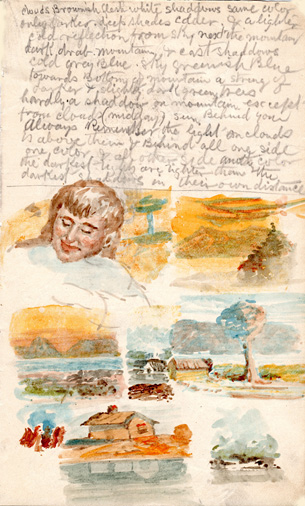 clouds Brownish Dark white shadows same color
only darker. deep shades colder, & a lighter
cold reflection from sky next the mountain
dark drab. mountain, & cast shadows
cold grey Blue. Sky greenish Blue
towards Bottom of mountain a string of
larger & slightly dark green trees
hardly a shadow on mountain except
from clouds (midday) sun Behind you
Always Remember the light on clouds
is above them & Behind all one side
one color & all other side and color
the darkest lights are lighter than the
darkest shadows in their own distance